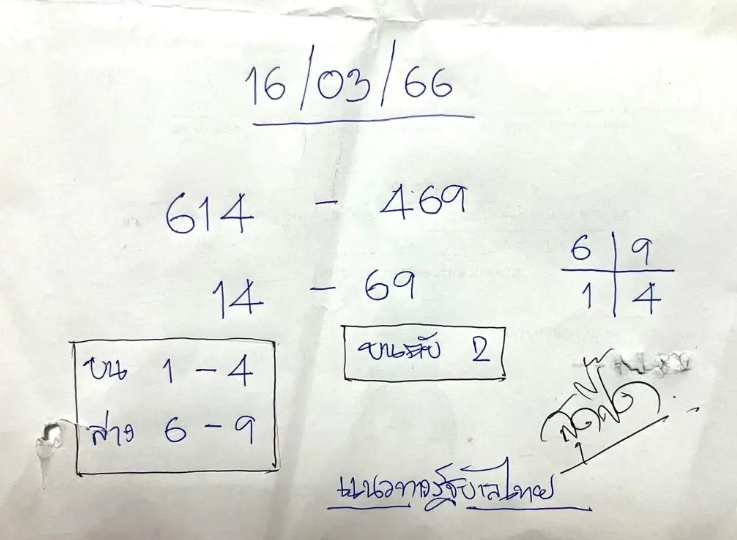 16/03/66
614 - 469
6 9
14 - 69
1 4
บน 1 - 4
บน 2
ล่าง 6 - 9
แนวทางรัฐบาลไทย